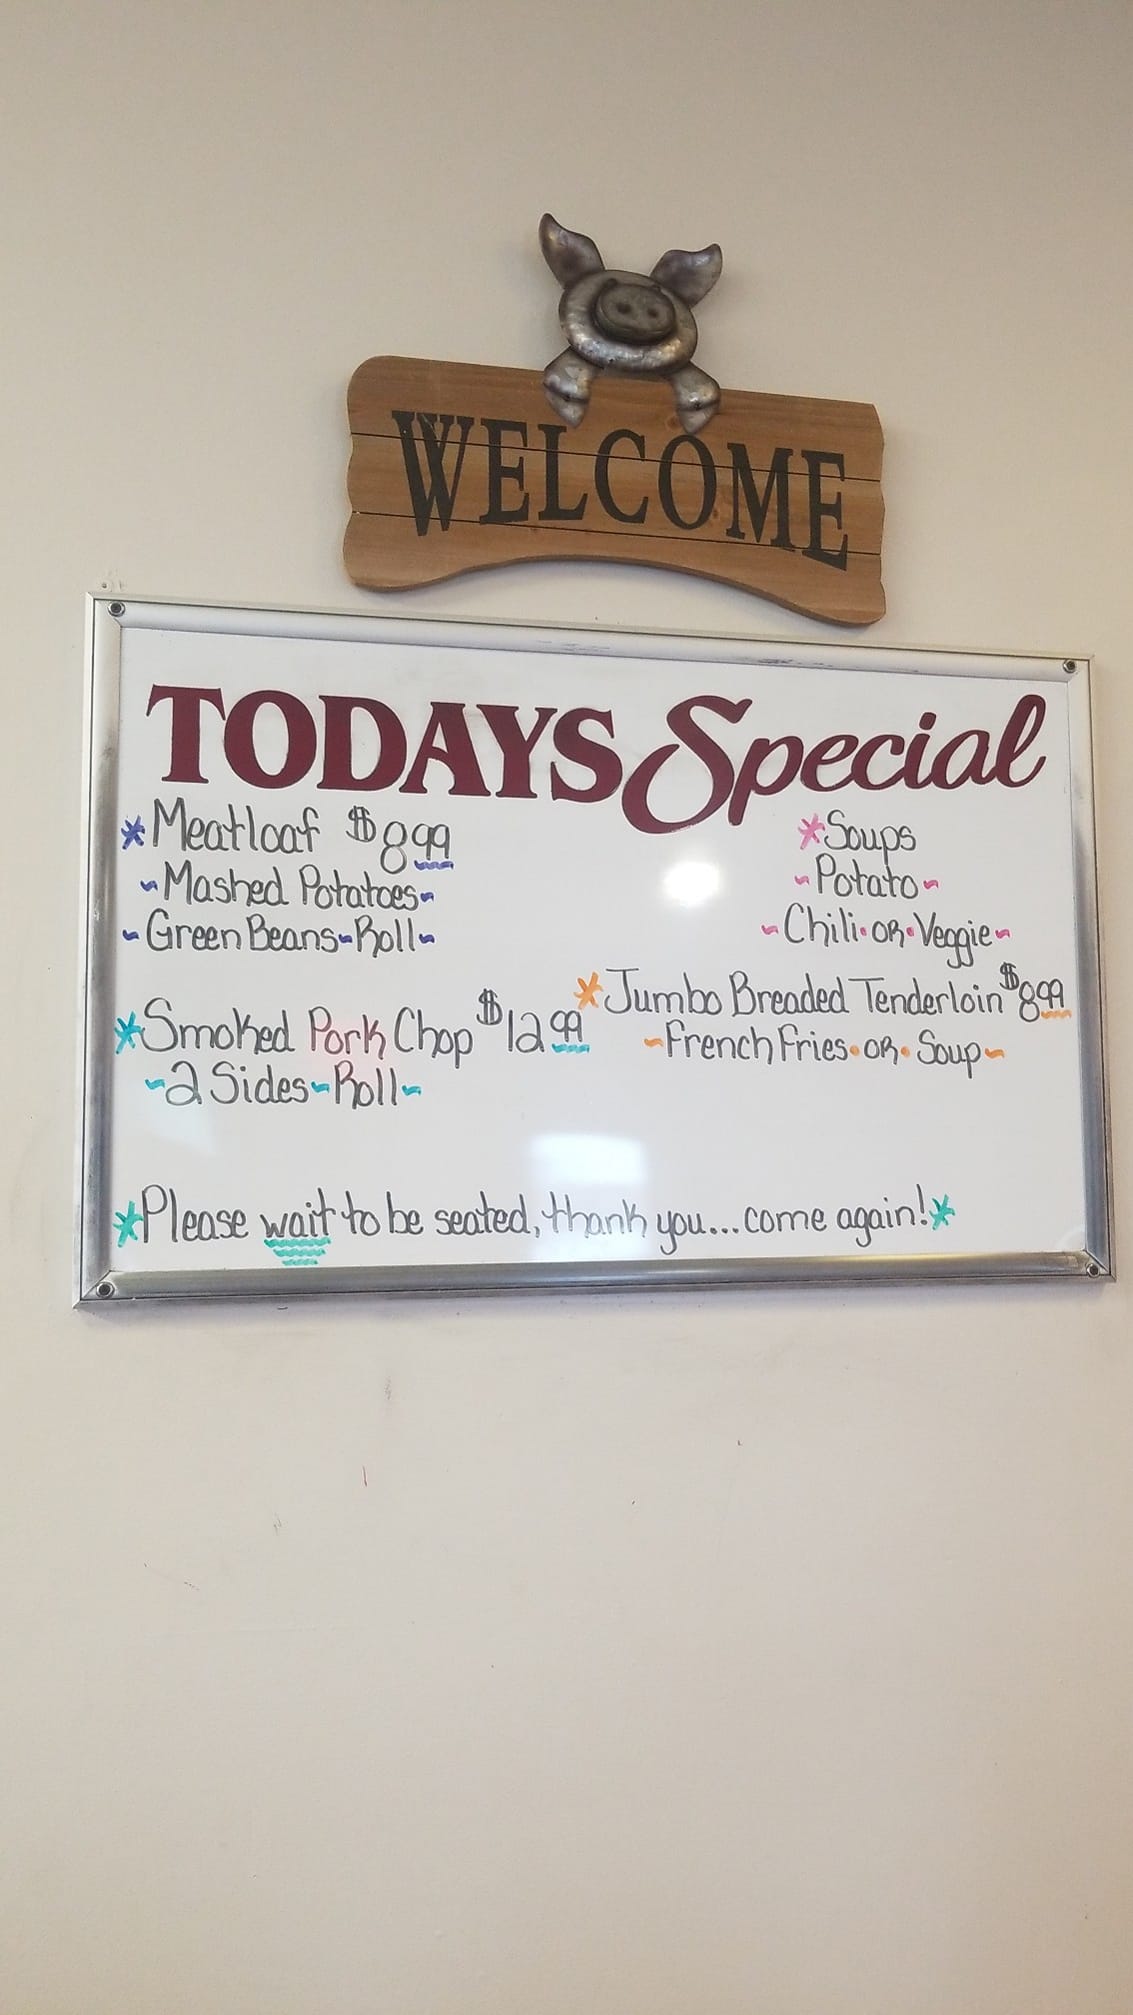 WELCOME
TODAYS Special
*Meatloaf $8.99
~Mashed Potatoes~
~Green Beans~Roll~
*Smoked Pork Chop $12.99
~2 Sides~Roll~
*Soups
~Potato~
~Chili•or•Veggie~
*Jumbo Breaded Tenderloin $8.99
~French Fries•or•Soup~
*Please wait to be seated, thank you...come again!*